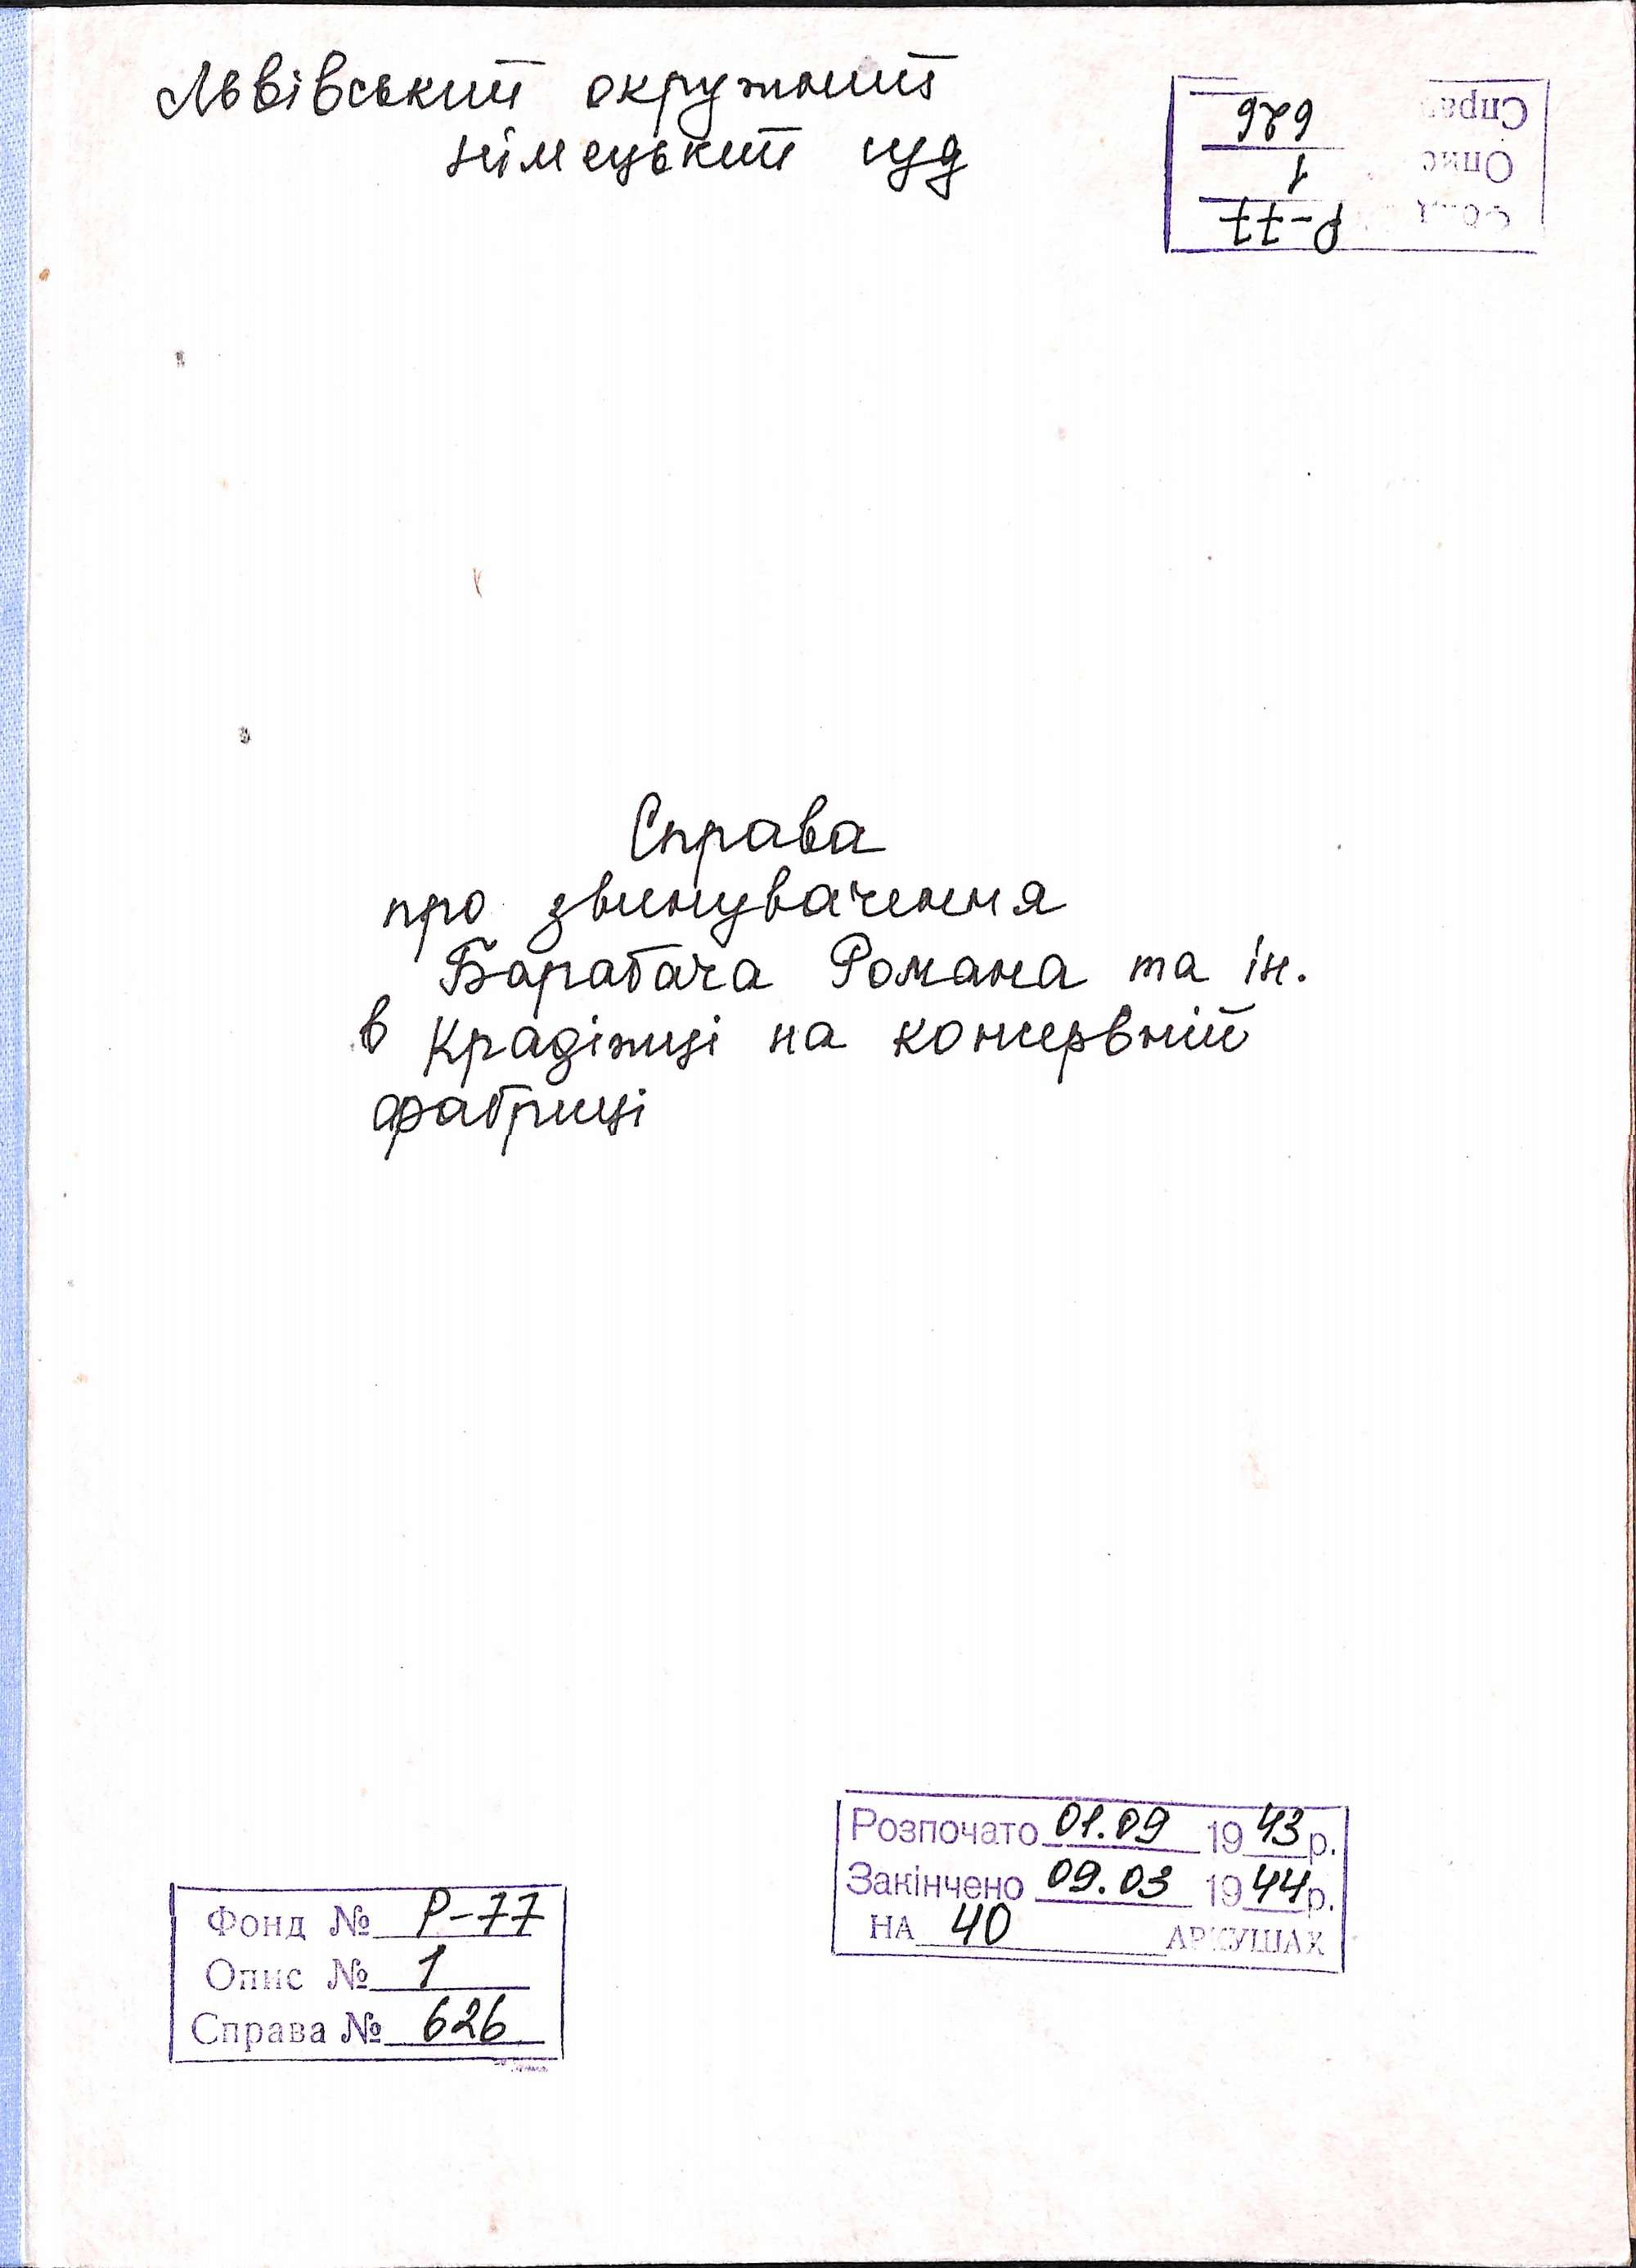 Львівський окружний
німецький суд
Справа
626
Опис
1
Р-77
Справа
про звинувачення
Барабача Романа та ін.
в крадіжці на консервній
фабриці
Розпочато 01.09 1943 р.
Закінчено 09.03 1944 р.
НА 40 АРКУШАХ
Фонд № Р-77
Опис № 1
Справа № 626